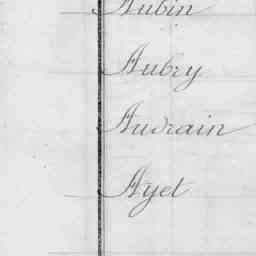 Aubin
Aubry
Audrain
Ayet